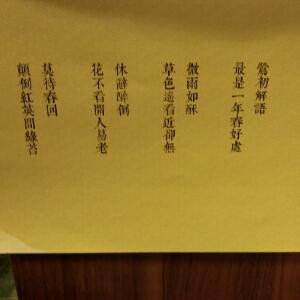 鶯初解語
最是一年春好處
微雨如酥
草色遙看近卻無
休辭醉倒
花不看開人易老
莫待春回
顛倒紅英間綠苔